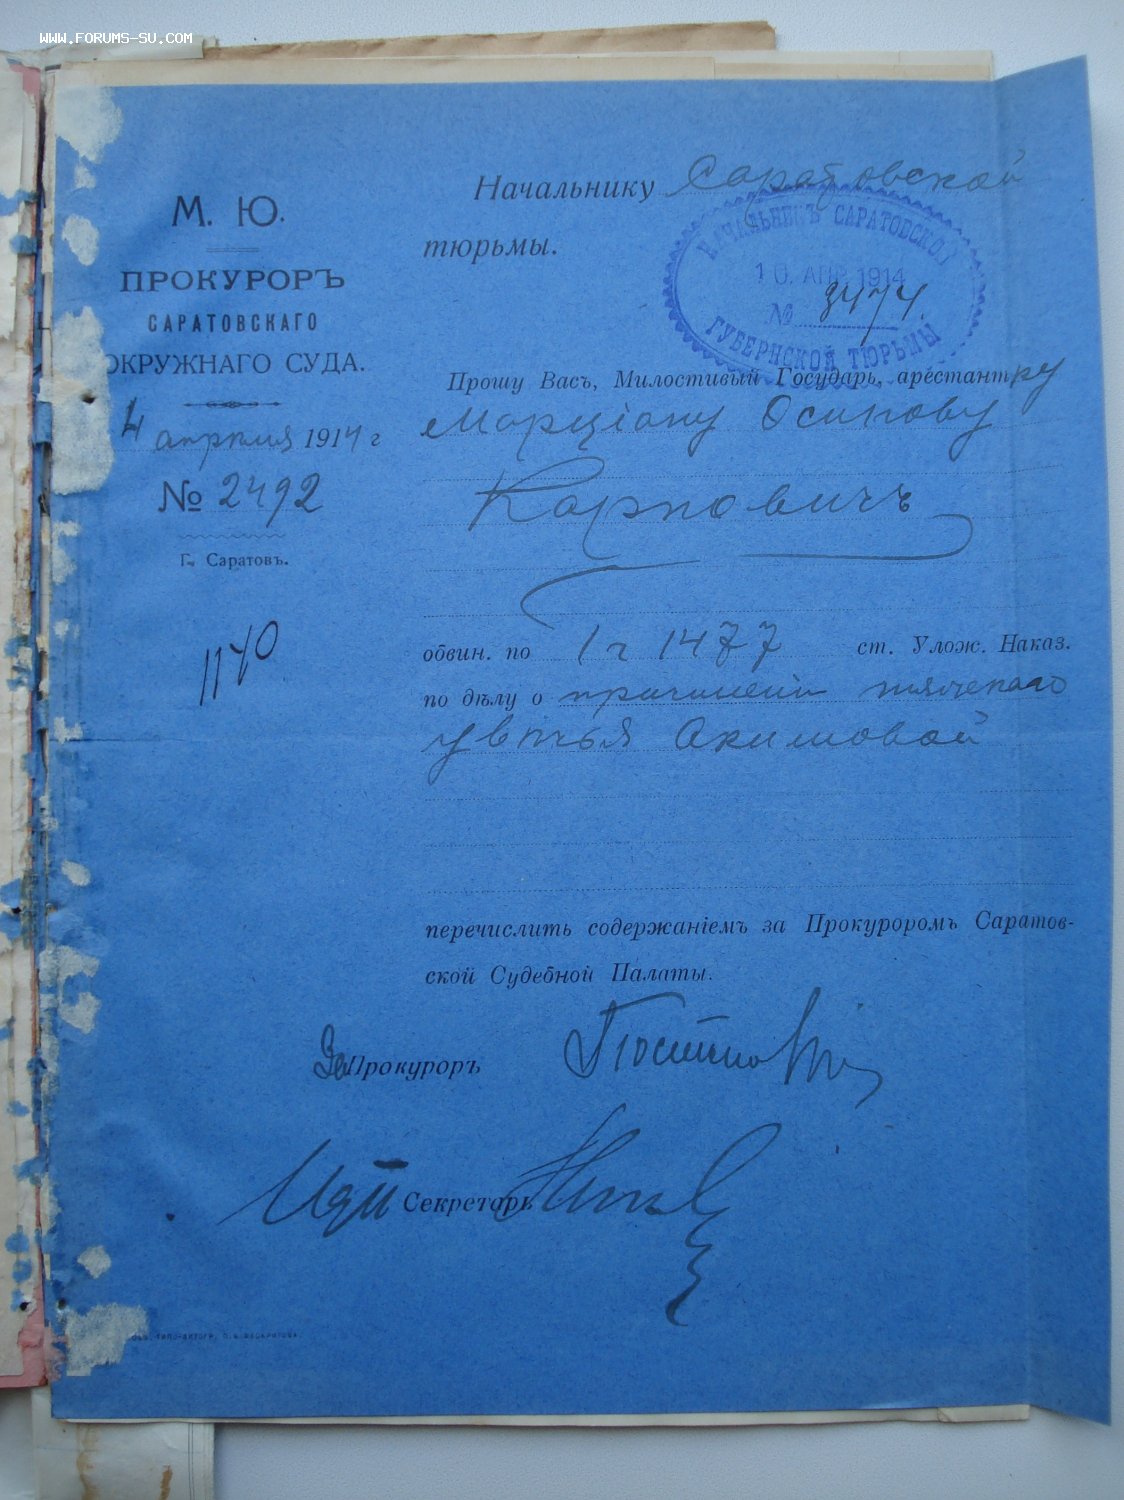 WWW.FORUMS-SU.COM
М. Ю.
ПРОКУРОРЪ
САРАТОВСКАГО
ОКРУЖНАГО СУДА.
4 апреля 1914 г
№ 2492
Г. Саратовъ.
1170
Начальнику Саратовской
тюрьмы.
НАЧАЛЬНИКЪ САРАТОВСКОЙ
10. АПР. 1914
№ 3474.
ГУБЕРНСКОЙ ТЮРЬМЫ
Прошу Васъ, Милостивый Государь, арестант
Марціану Осипову
Карповичъ
обвин. по 1 ч 1477 ст. Улож. Наказ.
по дѣлу о причиненіи тяжекаго
увѣчья Акимовой
перечислить содержаніемъ за Прокуроромъ Саратов-
ской Судебной Палаты.
За Прокуроръ
Секретарь